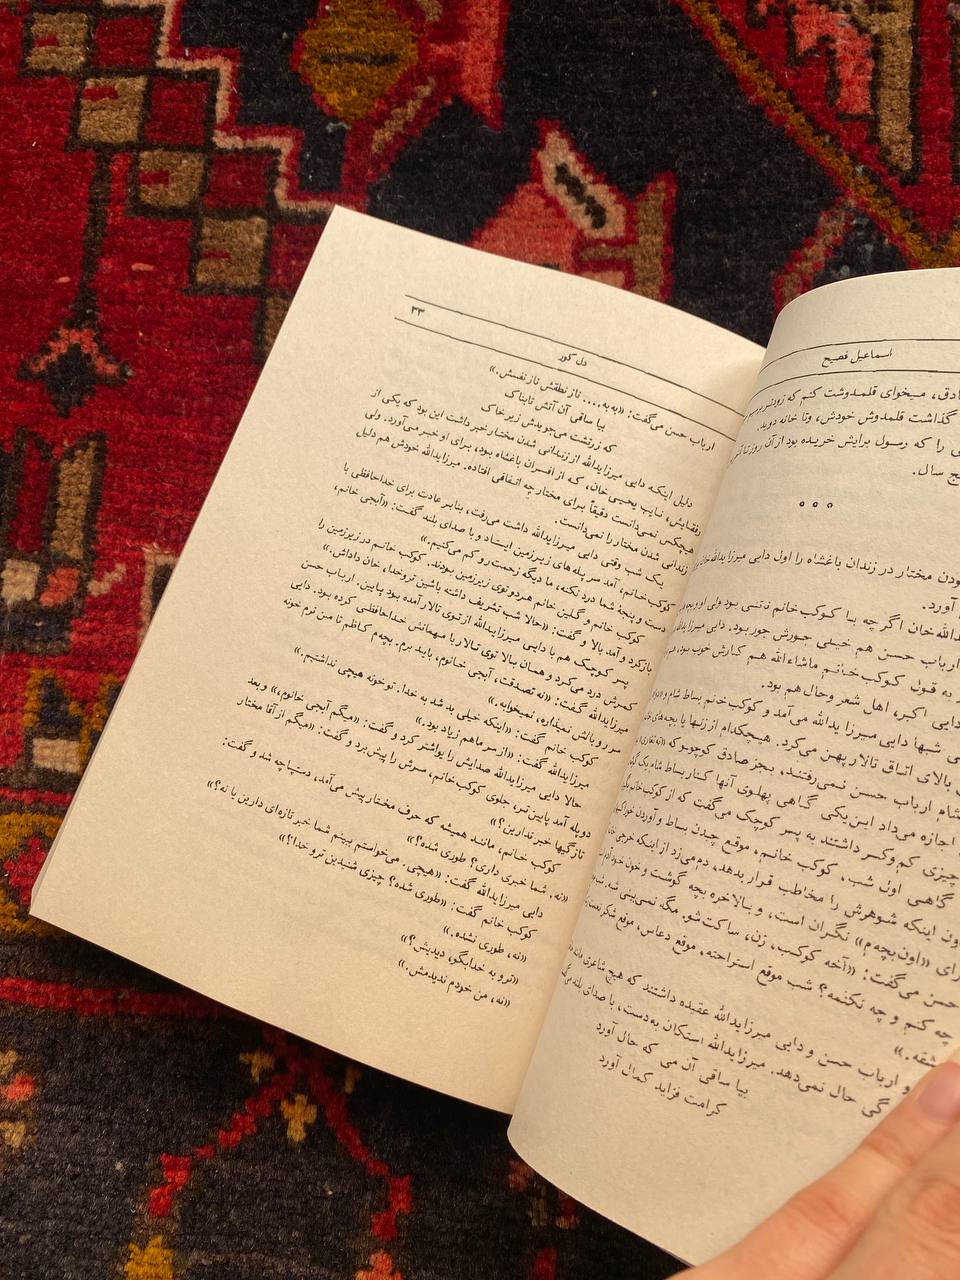 اسماعیل فصیح
صادق، میخوای قلمدوشت کنم که زودتر برسیم
گذاشت قلمدوش خودش، وتا خانه دوید.
را که رسول برایش خریده بود از آن روز تا
پنج سال.
ه ه ه
بودن مختار در زندان باغشاه را اول دایی میرزا یدالله خان
آورد.
یدالله‌خان اگرچه با کوکب خانم ناتنی بود ولی او و بچه‌ها
ارباب حسن هم خیلی جورش جور بود. دایی میرزا یدالله
به قول کوکب خانم ماشاءالله هم کبابش خوب بود، هم
دایی اکبر، اهل شعر و حال هم بود.
شبها دایی میرزا یدالله می‌آمد و کوکب خانم بساط شام و
بالای اتاق تالار پهن می‌کرد. هیچکدام از زنها یا بچه‌های
شام ارباب حسن نمی‌رفتند، بجز صادق کوچولو که
اجازه می‌داد این یکی گاهی پهلوی آنها کنار بساط شام یک
چیزی کم و کسر داشتند به پسر کوچک می گفت که از کوکب خانم
گاهی اون شب، کوکب خانم، موقع چیدن بساط و آوردن خوراکیها
بدون اینکه شوهرش را مخاطب قرار بدهد، دم می‌زد از اینکه
برای «اون بچه‌م» نگران است، و بالاخره بچه گوشت و خون خود آدم
حسن می‌گفت: «آخه کوکب، زن، ساکت شو. مگه نمی‌بینی شبه.
چه کنم و چه نکنمه؟ شب موقع استراحته، موقع دعاس، موقع شکر
عشقه.»
و ارباب حسن و دایی میرزا یدالله عقیده داشتند که هیچ شاعری
حال نمی‌دهد. میرزا یدالله استکان به دست، با صدای بلند
بیا ساقی آن می که حال آورد
کرامت فزاید کمال آورد
۳۳
دل کور
ارباب حسن می‌گفت: «به به.... ناز نطقش ناز نفسش.»
بیا ساقی آن آتش تابناک
که زرتشت می‌جویدش زیر خاک
دلیل اینکه دایی میرزا یدالله از زندانی شدن مختار خبر داشت این بود که یکی از
رفقایش، نایب یحیی خان، که از افسران باغشاه بود، برای او خبر می‌آورد. ولی
هیچکس نمی‌دانست دقیقاً برای مختار چه اتفاقی افتاده. میرزا یدالله خودش هم دلیل
زندانی شدن مختار را نمی‌دانست.
یک شب وقتی دایی میرزا یدالله داشت می‌رفت، بنابر عادت برای خداحافظی با
کوکب خانم، آمد سر پله‌های زیرزمین ایستاد و با صدای بلند گفت: «آبجی خانم،
دست و پنجهٔ شما درد نکنه، ما دیگه زحمت رو کم می‌کنیم.»
کوکب خانم و گلین خانم هر دو توی زیرزمین بودند. کوکب خانم در زیرزمین را
باز کرد و آمد بالا و گفت: «حالا شب تشریف داشته باشین تروخدا، خان داداش.»
پسر کوچک هم با دایی میرزا یدالله از توی تالار آمده بود پایین. ارباب حسن
کمرش درد می‌کرد و همان بالا توی تالار با مهمانش خداحافظی کرده بود. دایی
میرزا یدالله گفت: «نه تصدقت، آبجی خانوم، باید برم. بچه‌م کاظم تا من نرم خونه
سر رو بالش نمیذاره، نمیخوابه.»
کوکب خانم گفت: «اینکه خیلی بد شد به خدا. تو خونه هیچی نداشتیم.»
میرزا یدالله گفت: «از سر ماهم زیاد بود.»
حالا دایی میرزا یدالله صدایش را یواشتر کرد و گفت: «میگم آبجی خانوم،» و بعد
دو پله آمد پایین‌تر، جلوی کوکب خانم، سرش را پیش برد و گفت: «میگم از آقا مختار
تازگیها خبر ندارین؟»
کوکب خانم، مانند همیشه که حرف مختار پیش می‌آمد، دستپاچه شد و گفت:
«نه. شما خبری داری؟ طوری شده؟»
دایی میرزا یدالله گفت: «هیچی. می‌خواستم ببینم شما خبر تازه‌ای دارین یا نه؟»
کوکب خانم گفت: «طوری شده؟ چیزی شنیدین تروخدا؟»
«نه، طوری نشده.»
«تروبه خدا بگو، دیدیش؟»
«نه، من خودم ندیدمش.»